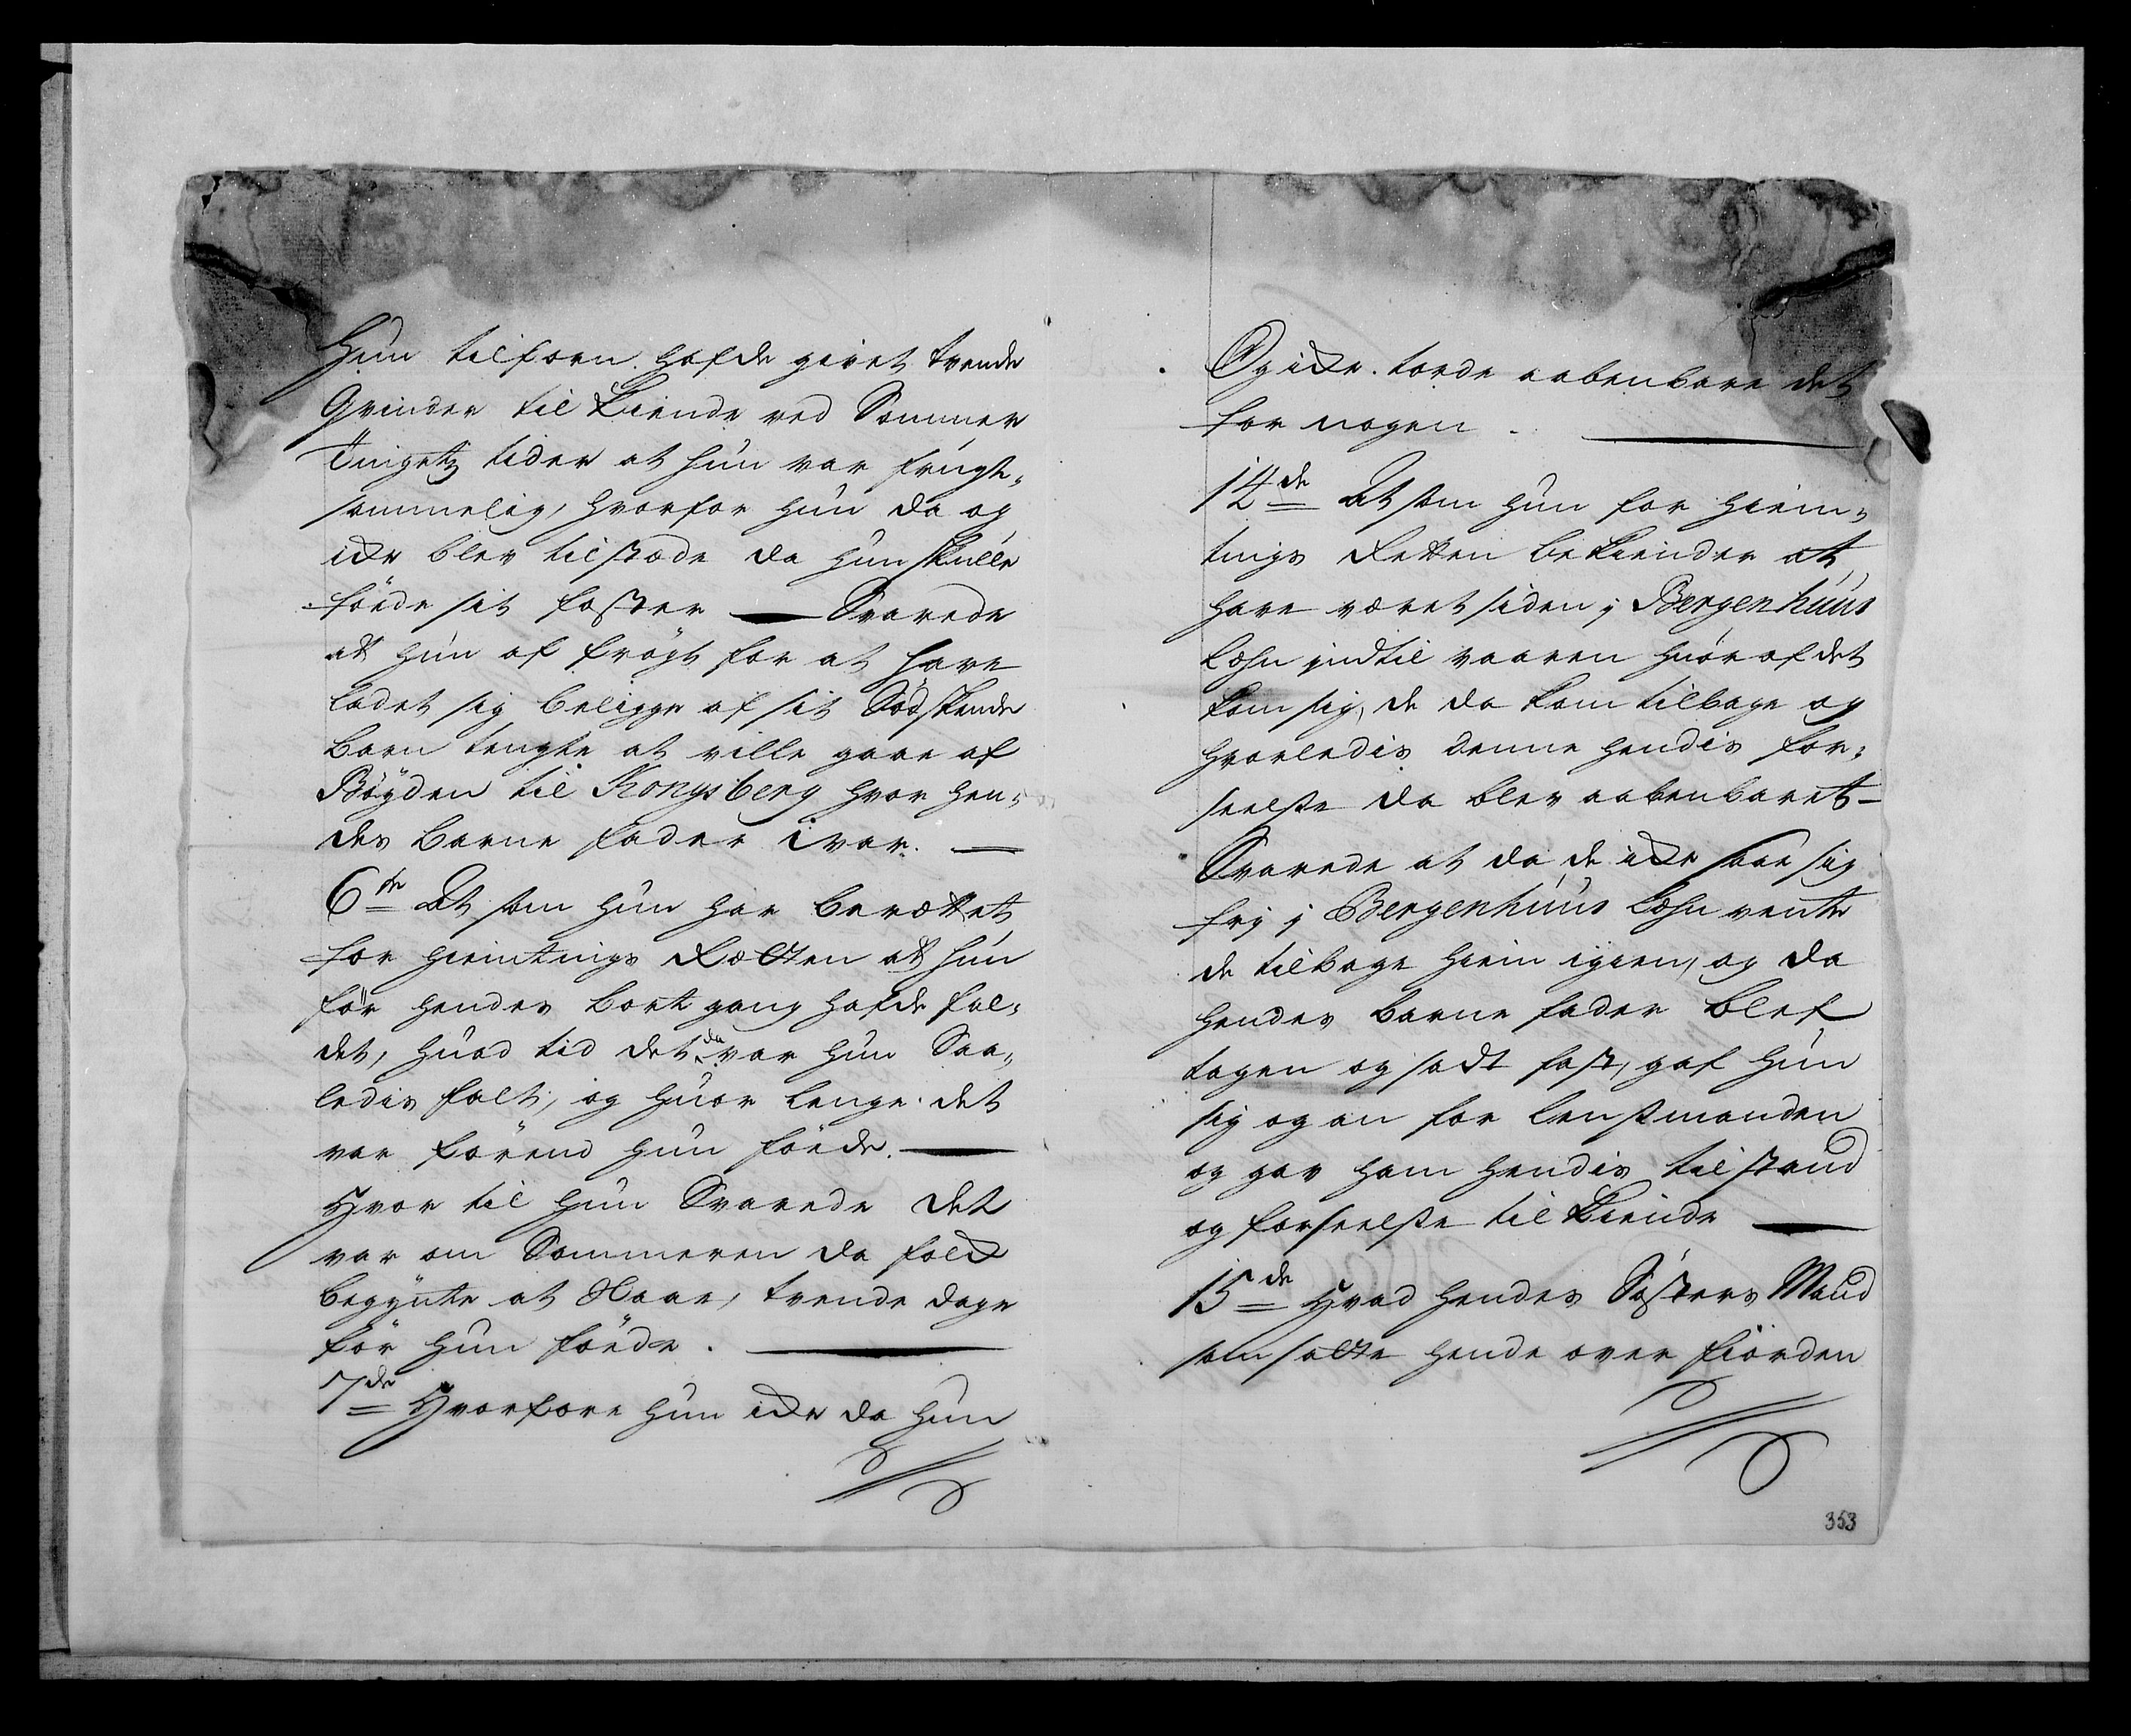 Hun tilforn hafde givet trende
Qvinder til kiende ved Sommer
Tingetz tider at hun var frugt„
sommelig, hvorfor hun da og
icke blev tilstæde da hun skulle
föede sit foster — Svarede
at hun af frögt for at have
ladet sig beligge af sit Södskende
barn tengte at ville gaae af
Böyden til Kongsberg hvor hen„
des barne fader ivar. —
6te At som hun har berættet
for hiemtings Rætten at hun
för hendes bortgang hafde fal„
det, huad tid det da var hun Saa„
ledis falt, og huor lenge det
var förend hun föede. —
Hvor til hun Svarede det
var om Sommeren da folck
begynte at Slaae, trende dage
för hun föede. —
7de Hvorfore hun icke da hun
Og icke torde aabenbare det
for nogen. —
14de At som hun for hiem„
tings Retten bekiender at
have været siden i Bergenhuus
Læhn indtil vaaren huoraf det
kom sig, de da kom tilbage og
hvorledis denne hendis for„
seelse da blev aabenbaret —
Svarede at da de icke saae sig
fry i Bergenhuus Læhn vente
de tilbage hiem igien, og da
hendes barne fader blef
tagen og sadt fast, gaf hun
sig og an for Lensmanden
og gav ham hendis tilstand
og forseelse til kiende —
15de Hvad hendes Søsters Mand
som satte hende over fiörden
353